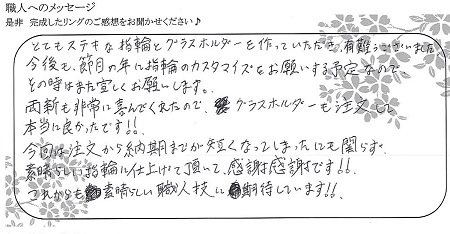 職人へのメッセージ
是非 完成したリングのご感想をお聞かせください♪
とてもステキな指輪とグラスホルダーを作っていただき、有難うございました
今後も、節目の年に指輪のカスタマイズをお願いする予定なので、
その時はまた宜しくお願いします。
両親も非常に喜んでくれたので、グラスホルダーも注文して
本当に良かったです!!
今回は注文から納期までが短くなってしまったにも関らず、
素晴らしい指輪に仕上げて頂いて、感謝感謝です!!
これからも素晴らしい職人技に期待しています!!